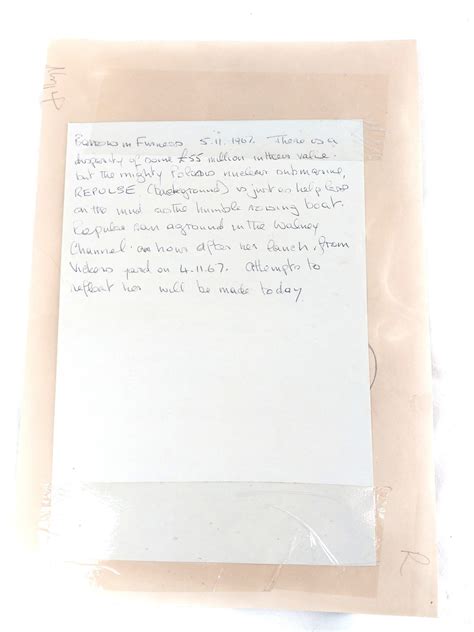 Barrow in Furness 5.11.1967. There is a
disparity of some £55 million in their value.
but the mighty Polaris nuclear submarine,
REPULSE (background) is just as helpless
on the mud as the humble rowing boat.
Repulse ran aground in the Walney
Channel. an hour after her launch, from
Vickers yard on 4.11.67. Attempts to
refloat her will be made today
R